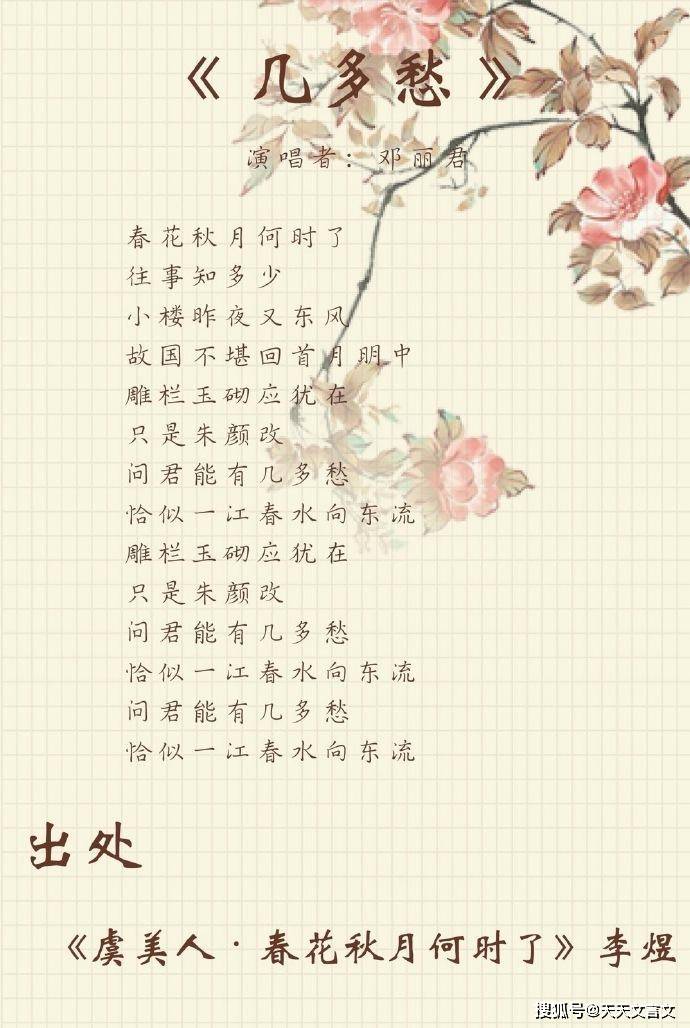 《几多愁》
演唱者：邓丽君
春花秋月何时了
往事知多少
小楼昨夜又东风
故国不堪回首月明中
雕栏玉砌应犹在
只是朱颜改
问君能有几多愁
恰似一江春水向东流
雕栏玉砌应犹在
只是朱颜改
问君能有几多愁
恰似一江春水向东流
问君能有几多愁
恰似一江春水向东流
出处
《虞美人·春花秋月何时了》李煜
搜狐号@天天文言文